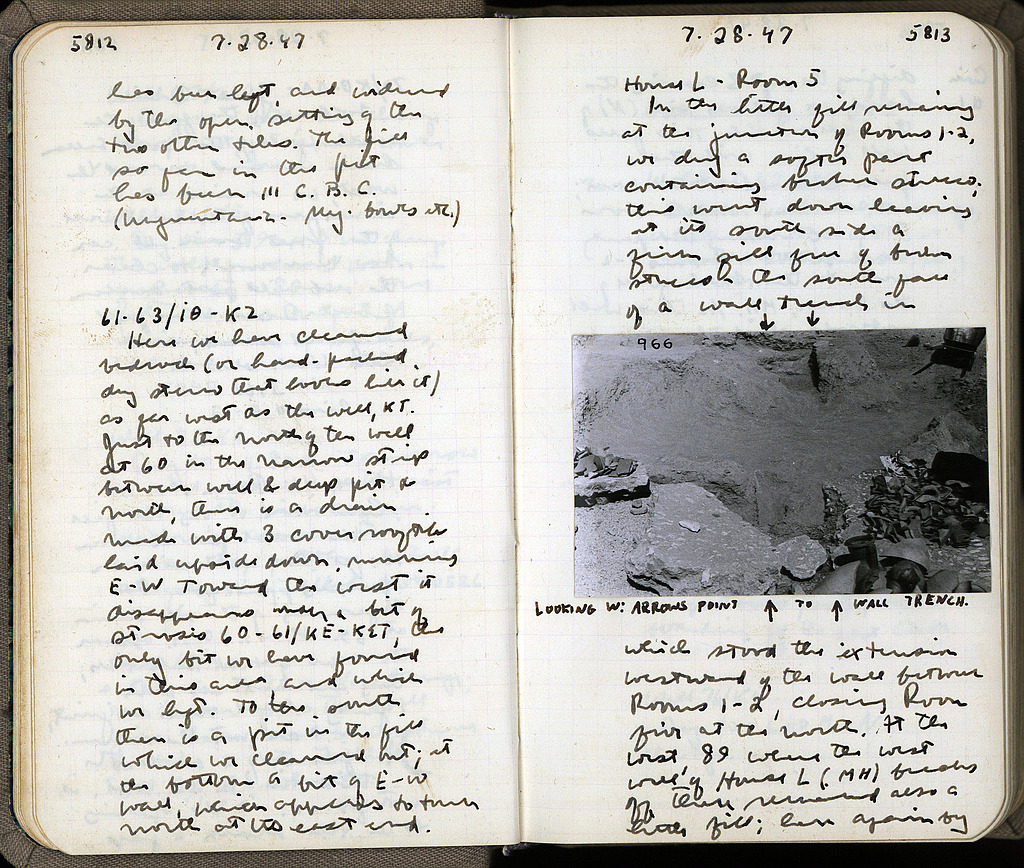 5812 7.28.47
has been left, and widened
by the open setting of the
two other tiles. The fill
so far in this pit
has been III C. B.C.
(Negmentaria. Meg. bowls etc.)
61-63/10 - KZ
Here we have cleaned
bedrock (or hard-packed
dug stereo that looks like it)
as far west as the well, KT.
Just to the north of the well
at 60 in the narrow strip
between well & deep pit to
north, there is a drain
made with 3 cover
laid upside down, running
E-W Toward the west it
disappears under a bit of
strosis 60-61/KE-KET, the
only bit we have found
in this area, and which
we left. To the south
there is a pit in the fill
which we cleaned out; at
the bottom a bit of E-W
wall, which appears to turn
north at its east end.
7.28.47 5813
House L - Room 5
In the little fill remaining
at the junction of Rooms 1-2,
we dug a softer part
containing broken stucco;
this went down leaving
at its south side a
firm fill free of broken
stucco: the south face
of a wall trench in
966
LOOKING W: ARROWS POINT TO WALL TRENCH.
which stood the extension
westward of the wall between
Rooms 1-2, closing Room
five at the north. At the
west 89 where the west
wall of House L (MH) breaks
off there remained also a
little fill; here again by